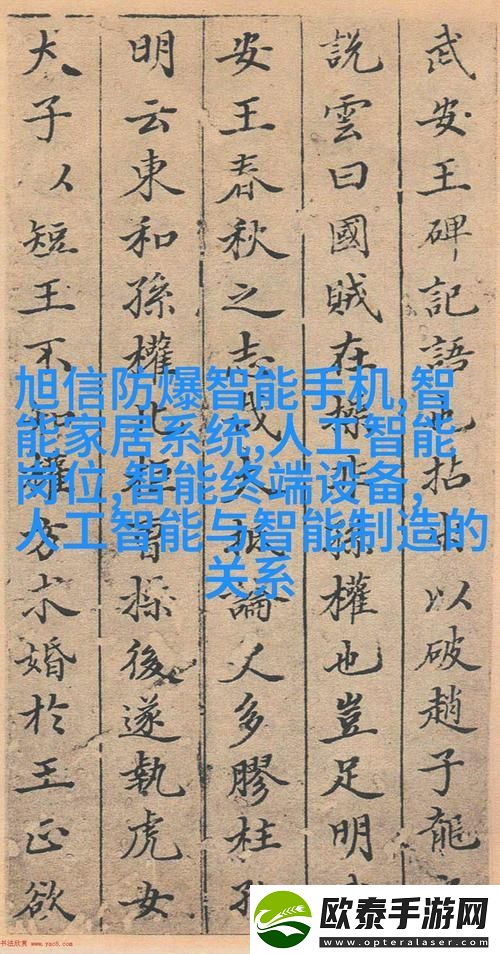 武安王碑記語也拈出以破趙子龍
說雲曰國賊在操非孫權也豈足明
安王春秋之志哉大抵論人多膠柱
明云東和孫權北拒曹操後遂執虎女
犬子人短王不知權方求婚於王正欲
旭信防爆智能手机,智
能家居系统,人工智能
岗位,智能终端设备,
人工智能与智能制造的
关系
书法欣赏 www.yac8.com
欧泰手游网
www.opteralaser.com